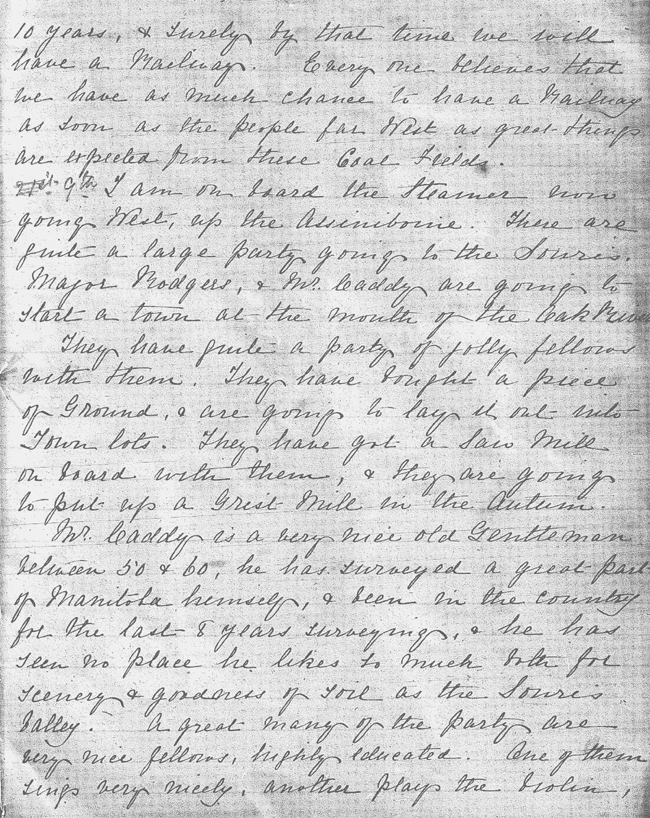 10 years, & surely by that time we will
have a Railway. Every one believes that
we have as much chance to have a Railway
as soon as the people far West as great things
are expected from these Coal Fields.
21st 9th I am on board the Steamer now
going West, up the Assiniboine. There are
quite a large party going to the Souris.
Major Rodgers, & Mr. Caddy are going to
start a town at the mouth of the Oak River
They have quite a party of jolly fellows
with them. They have bought a piece
of Ground, & are going to lay it out into
Town lots. They have got a Saw Mill
on board with them, & they are going
to put up a Grist Mill in the Autum.
Mr. Caddy is a very nice old Gentleman
between 50 & 60, he has surveyed a great part
of Manitoba himself, & been in the country
for the last 8 years surveying, & he has
seen no place he likes so much both for
scenery & goodness of soil as the Souris
Valley. A great many of the party are
very nice fellows, highly educated. One of them
sings very nicely, another plays the Violin,